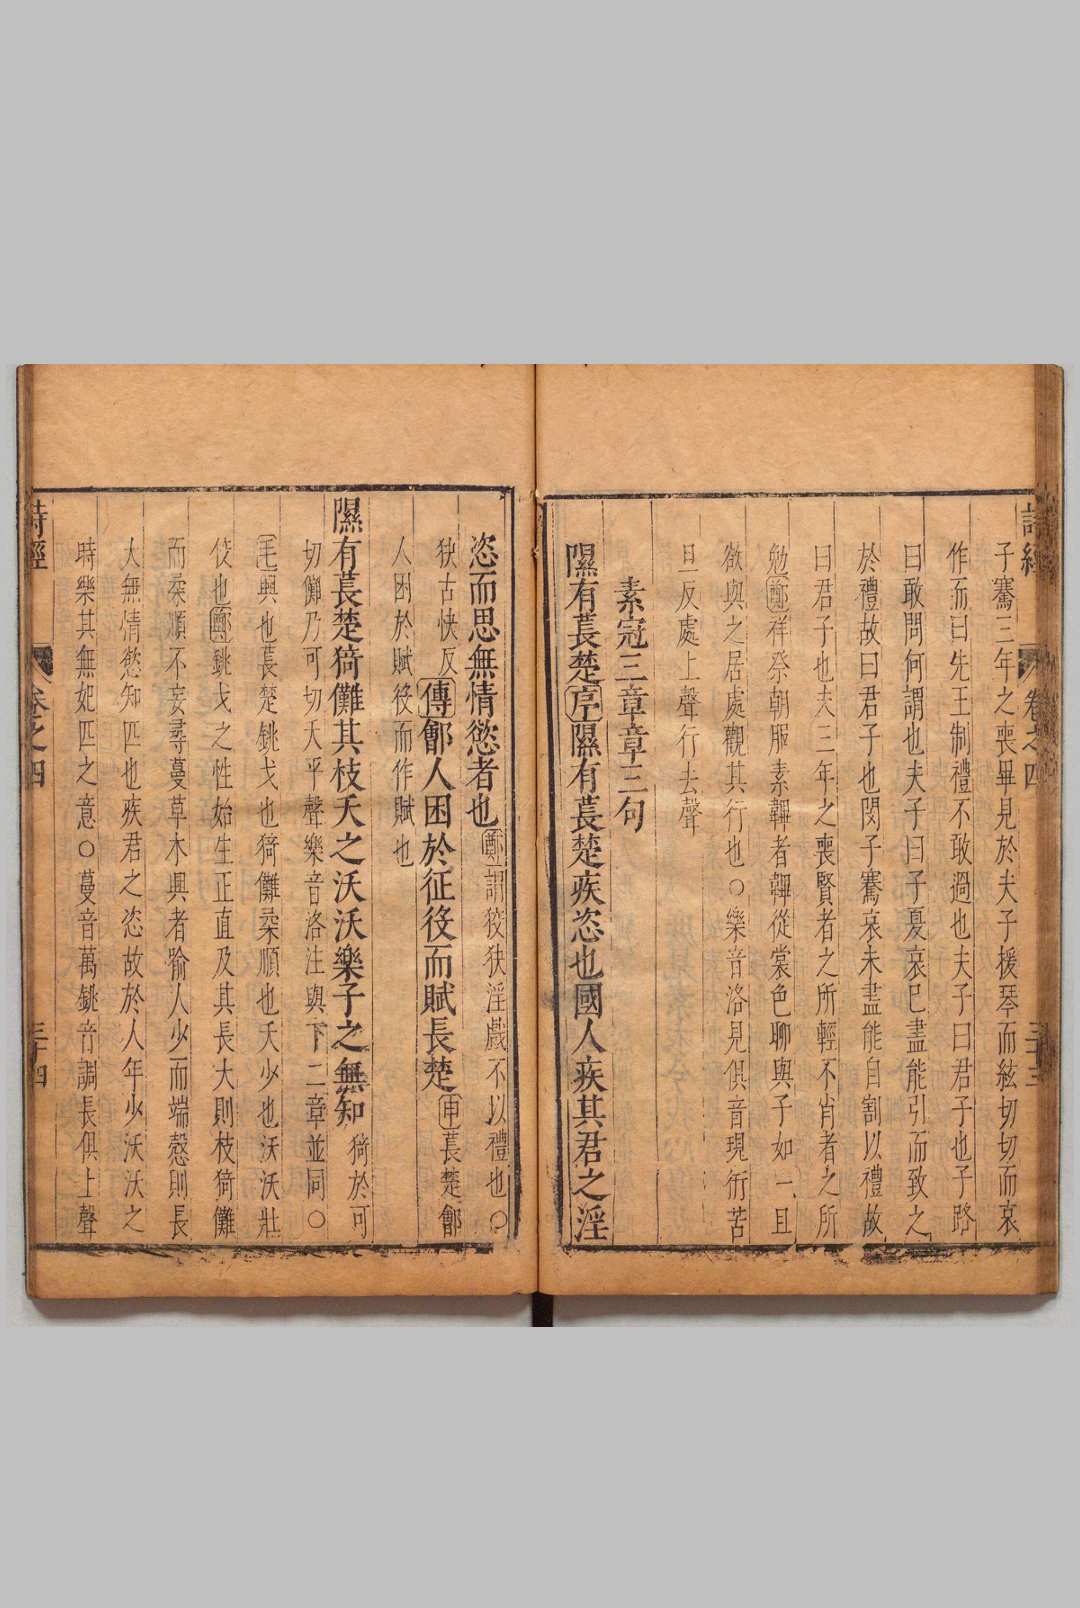 詩經 卷之四 三十三
子騫三年之喪畢見於夫子援琴而絃切切而哀
作而曰先王制禮不敢過也夫子曰君子也子路
曰敢問何謂也夫子曰子夏哀已盡能引而致之
於禮故曰君子也閔子騫哀未盡能自割以禮故
曰君子也夫三年之喪賢者之所輕不肖者之所
勉鄭祥祭朝服素韠者韠從裳色聊與子如一且
欲與之居處觀其行也○樂音洛見俱音現衎苦
旦反處上聲行去聲
素冠三章章三句
隰有萇楚序隰有萇楚疾恣也國人疾其君之淫
恣而思無情慾者也鄭謂狡狹淫戲不以禮也○
狹古快反傳鄶人困於征役而賦長楚申萇楚鄶
人困於賦役而作賦也
隰有萇楚猗儺其枝夭之沃沃樂子之無知猗於可
切儺乃可切夭平聲樂音洛注與下二章並同○
毛興也萇楚銚弋也猗儺柔順也夭少也沃沃壯
佼也鄭銚弋之性始生正直及其長大則枝猗儺
而柔順不妄尋蔓草木興者喻人少而端愨則長
大無情慾知匹也疾君之恣故於人年少沃沃之
時樂其無妃匹之意○蔓音萬銚音調長俱上聲
詩經 卷之四 三十四